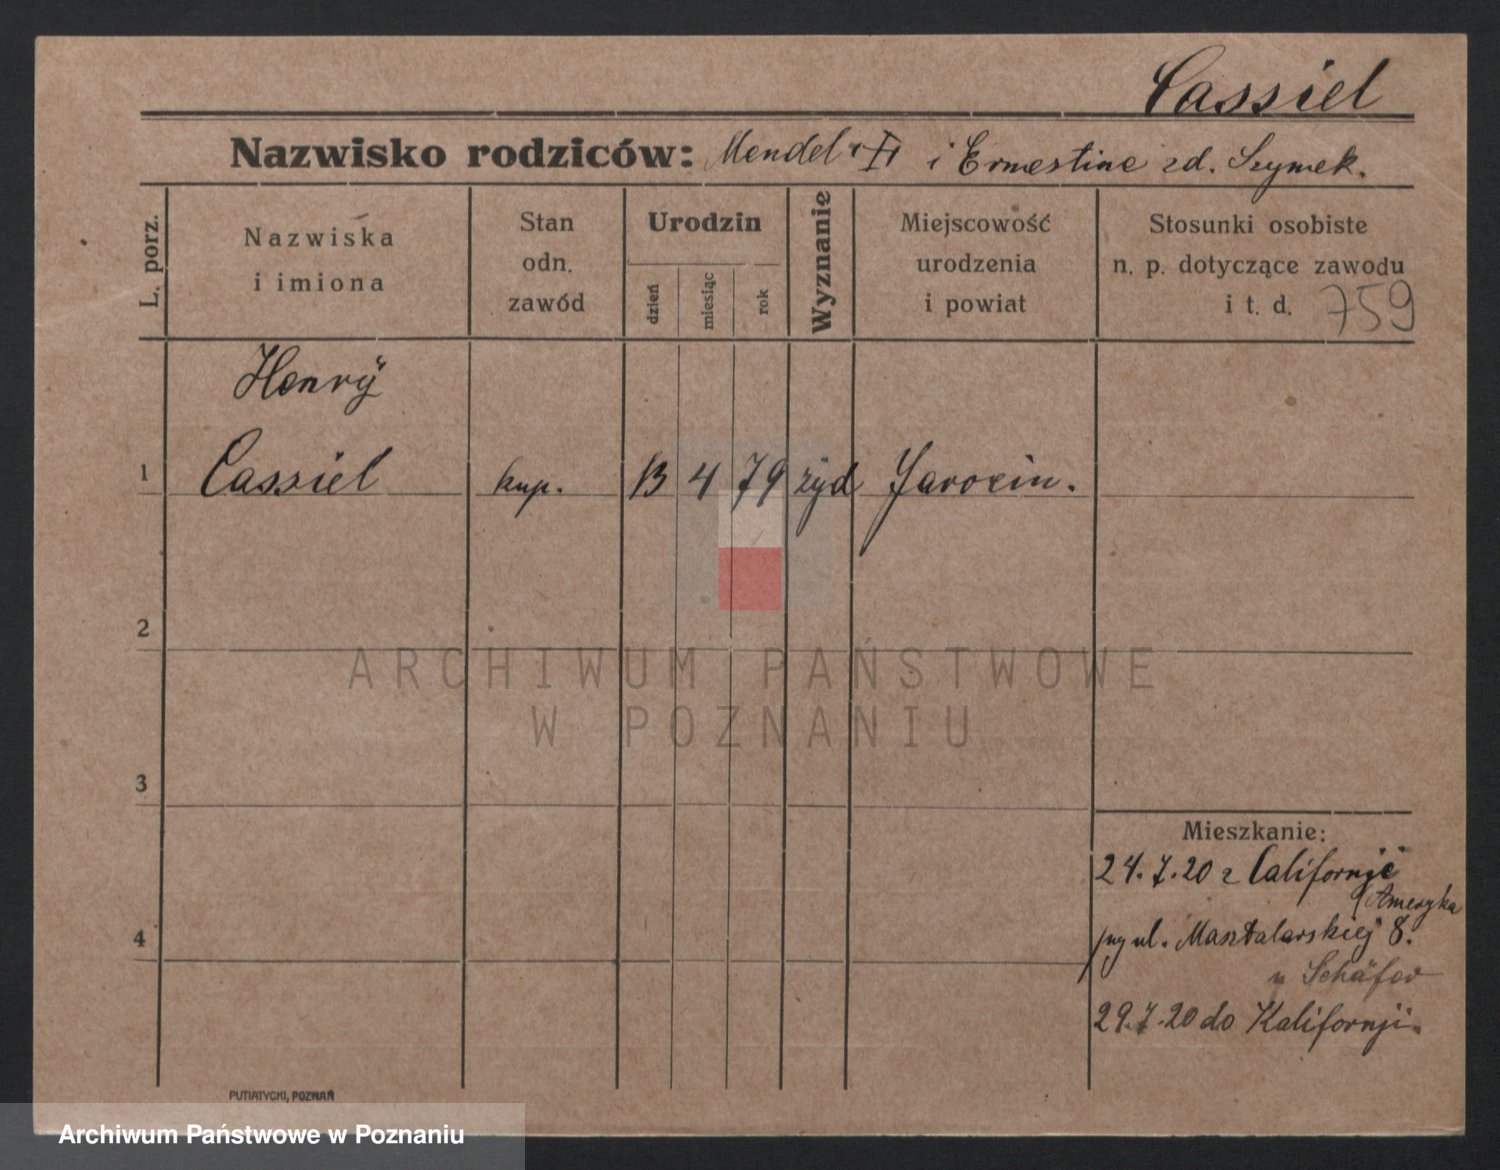 Cassiel
Nazwisko rodziców: Mendel i Ernestine zd. Szymek.
L. porz.
Nazwiska
i imiona
Stan
odn.
zawód
Urodzin
dzień
miesiąc
rok
Wyznanie
Miejscowość
urodzenia
i powiat
Stosunki osobiste
n. p. dotyczące zawodu
i t. d. 759
Henry
1 Cassiel kup. 13 4 79 żyd Jarocin.
2
ARCHIWUM PAŃSTWOWE
W POZNANIU
3
Mieszkanie:
24.7.20 z Californji
Ameryka
4
przy ul. Masztalarskiej 8.
u Schäfer
29.7.20 do Kalifornji.
PUTIATYCKI, POZNAŃ
Archiwum Państwowe w Poznaniu